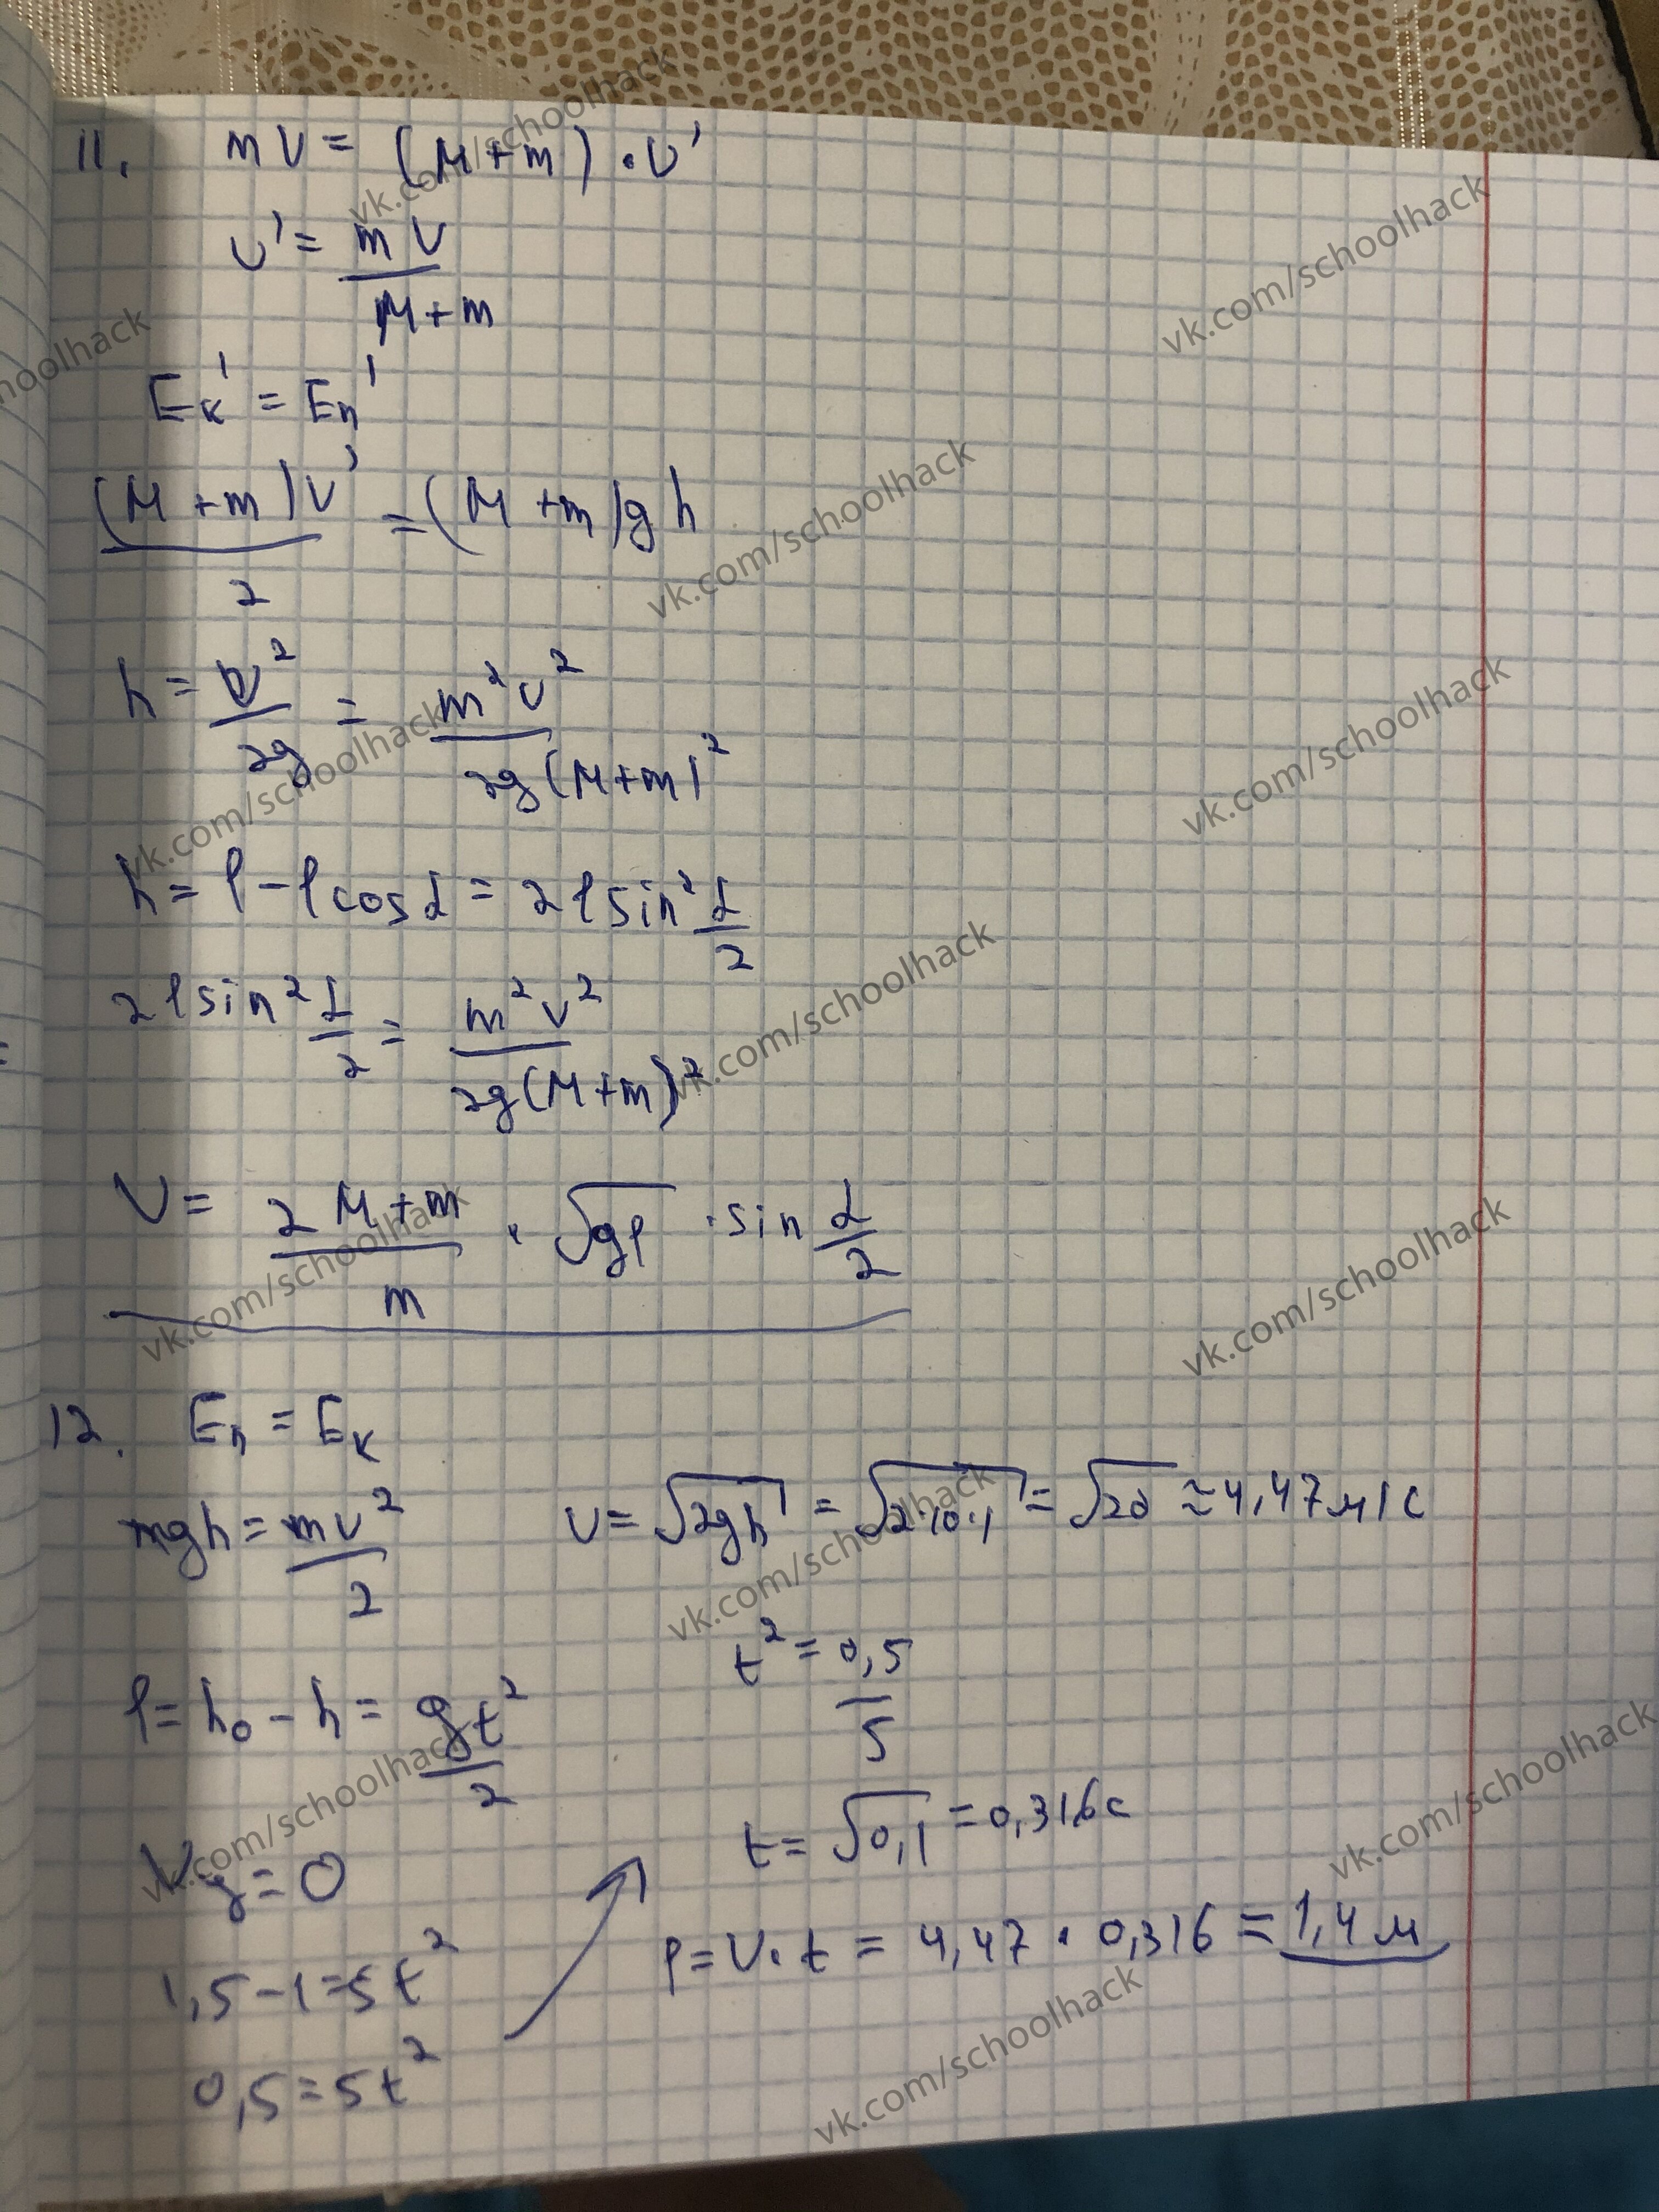 11. mV = (M+m)·V'
V' = mV / M+m
Eк' = Eп'
(M+m)V' / 2 = (M+m)gh
h = V² / 2g = m²V² / 2g(M+m)²
h = l - l cosα = 2l sin² α/2
2l sin² α/2 = m²V² / 2g(M+m)²
V = 2 M+m / m · √gl · sin α/2
12. Eп = Eк
mgh = mV² / 2
V = √2gh = √2·10·1 = √20 ≈ 4,47 м/с
l = h₀ - h = gt² / 2
Vy = 0
1,5 - 1 = 5t²
0,5 = 5t²
t² = 0,5 / 5
t = √0,1 = 0,316 с
l = V·t = 4,47 · 0,316 = 1,4 м
vk.com/schoolhack
vk.com/schoolhack
schoolhack
vk.com/schoolhack
vk.com/schoolhack
vk.com/schoolhack
vk.com/schoolhack
vk.com/schoolhack
vk.com/schoolhack
vk.com/schoolhack
vk.com/schoolhack
vk.com/schoolhack
vk.com/schoolhack
vk.com/schoolhack